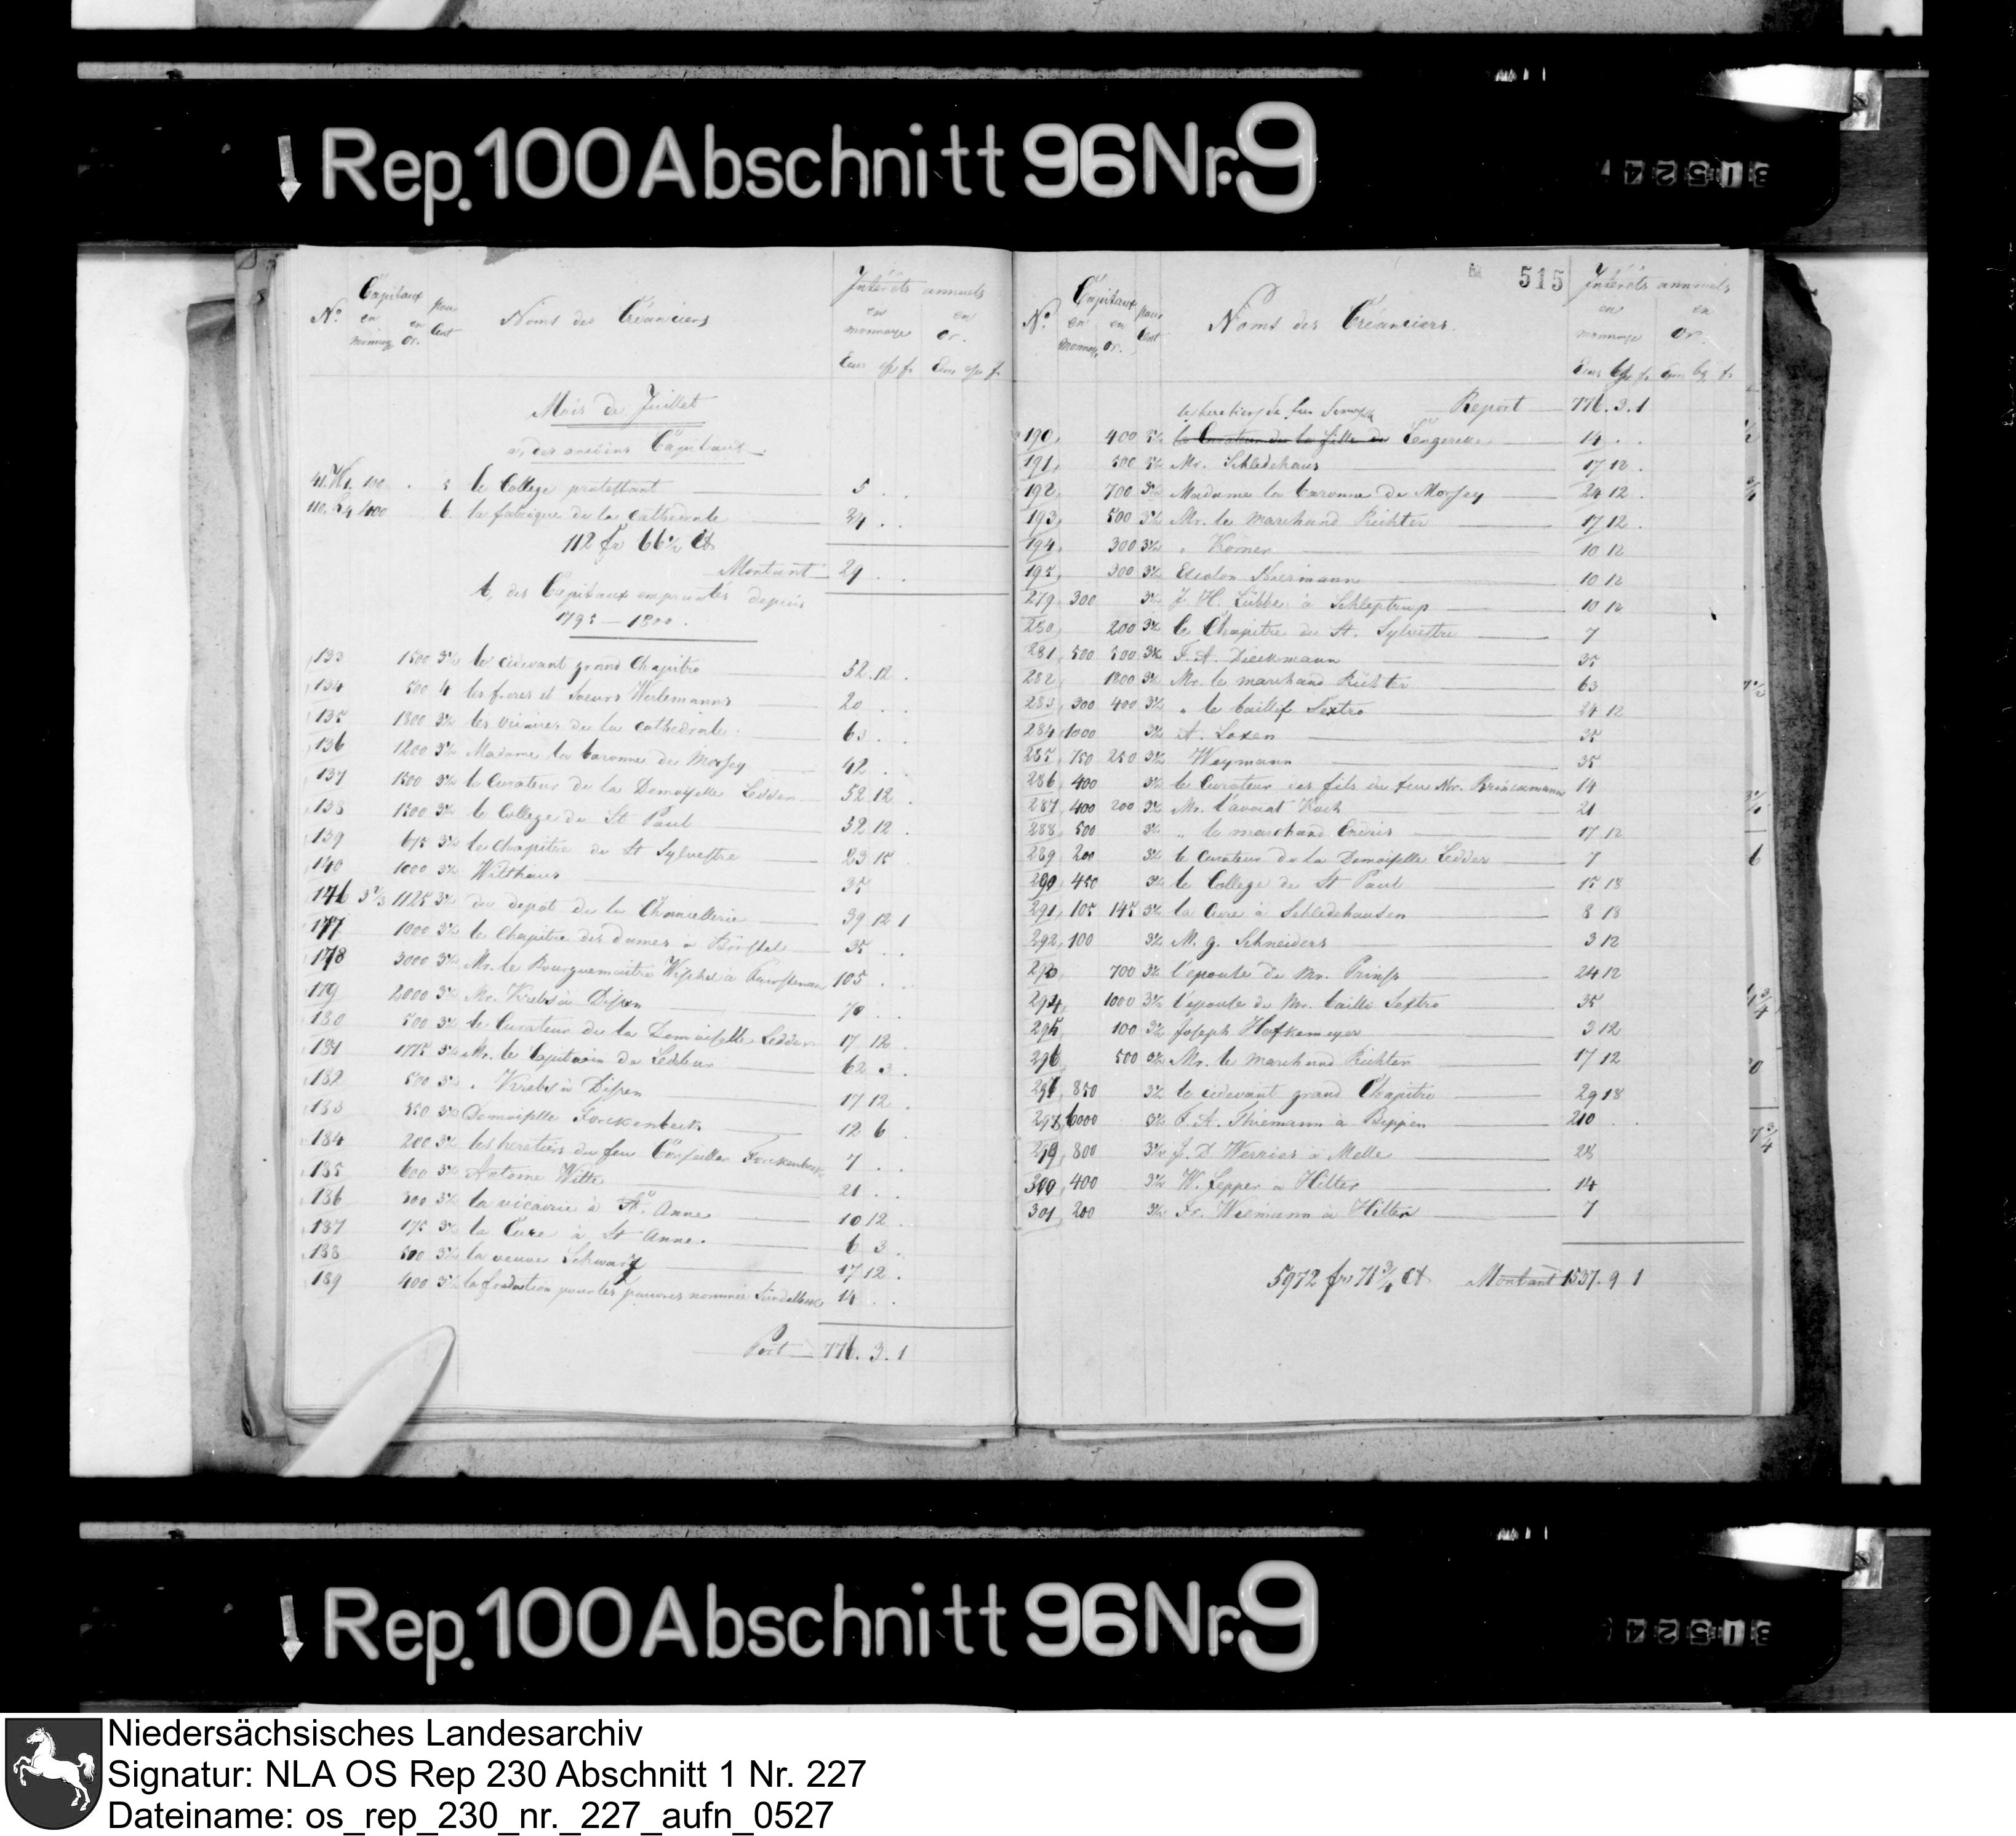 Rep. 100 Abschnitt 96 Nr. 9
31524
N.o Capitaux en monnoye en Or. pour Cent Noms des Créanciers Intérêts annuels en monnoye en Or.
Mois de Juillet
a, des anciens Capitaux.
41. 100 . 5 le College protestant 5 . .
110. 400 6. la fabrique de la cathedrale 24 . .
112 fr 66 2/3 Ct
Montant 29 . .
b, des Capitaux empruntés depuis
1795 – 1800.
133 1500 3½ le cidevant grand Chapitre 52.12.
134 500 4 les freres et Soeurs Werlemanns 20 . .
135 1800 3½ les vicaires de la cathedrale. 63 . .
136 1200 3½ Madame la baronne de Morsey 42 . .
137 1500 3½ le Curateur de la Demoiselle Ledder 52.12.
138 1500 3½ le College de St Paul 52 12 .
139 675 3½ le chapitre de St Sylvestre 23 15
140 1000 3½ Witthaus 35
146 1125 3½ du depot de la Chancellerie 39 12 1
177 1000 3½ le Chapitre des dames à Börstel 35 . .
178 3000 3½ Mr. le Bourguemaitre à 105 . .
179 2000 3½ Mr. Krebs à Dissen 70 . .
180 500 3½ le Curateur de la Demoiselle Ledder 17 12 .
181 1775 3½ Mr. le Capitain de Ledebur 62 3 .
182 500 3½ . Krebs à Dissen 17 12 .
183 350 3½ Demoiselle Forckenbeck 12 6 .
184 200 3½ les heretiers du feu Conseiller Forckenbeck 7 . .
185 600 3½ Antoine Witte 21 . .
186 300 3½ la vicairie à St. Anne 10 12
187 175 3½ la Cure à St Anne. 6 3 .
188 500 3½ la veuve Schwartz 17 12 .
189 400 3½ la fondation pour les pauvres nommée 14 . .
Port 776. 3. 1
515
N.o Capitaux en Monnoye en Or. pour Cent Noms des Créanciers. Intérêts annuels en monnoye en Or.
Report 776. 3. 1
les heretiers de feu
190, 400 3½ le Curateur de la fille de Lengerke 14 . .
191, 500 3½ Mr. Schledehaus 17 12 .
192, 700 3½ Madame la baronne de Morsey 24 12 .
193, 500 3½ Mr. le marchand Richter 17 12 .
194, 300 3½ . Korner 10 12
195, 300 3½ 10 12
279, 300 3½ J. H. Lübbe à Schleptrup 10 12
280, 200 3½ le Chapitre de St. Sylvestre 7
281, 500 500 3½ F. A. Dieckmann 35
282 1800 3½ Mr. le marchand Richter 63
283, 300 400 3½ " le baillif Sextro 24 12
284, 1000 3½ A. Loxen 35
285, 750 250 3½ Weymann 35
286, 400 3½ le Curateur des fils du feu Mr. Brinckmann 14
287, 400 200 3½ Mr. l'avocat Koch 21
288, 500 3½ " le marchand 17 12
289, 200 3½ le Curateur de la Demoiselle Ledder 7
290, 450 3½ le College de St Paul 15 18
291, 105 145 3½ la Cure à Schledehausen 8 18
292, 100 3½ M. g. Schneiders 3 12
293 700 3½ l'epouse de Mr. 24 12
294, 1000 3½ l'epouse de Mr. baillif Sextro 35
295, 100 3½ Joseph Hofkemeyer 3 12
296, 500 3½ Mr. le marchand Richter 17 12
297, 850 3½ le cidevant grand Chapitre 29 18
298, 6000 3½ F. A. Thiemann à Bippen 210
299, 800 3½ J. D. Werries à Melle 28
300, 400 3½ W. Lepper à Hilter 14
301, 200 3½ Fr. Wiemann à Hilter 7
5972 fr 71 3/4 Ct Montant 1537. 9 1
Rep. 100 Abschnitt 96 Nr. 9
31524
Niedersächsisches Landesarchiv
Signatur: NLA OS Rep 230 Abschnitt 1 Nr. 227
Dateiname: os_rep_230_nr._227_aufn_0527